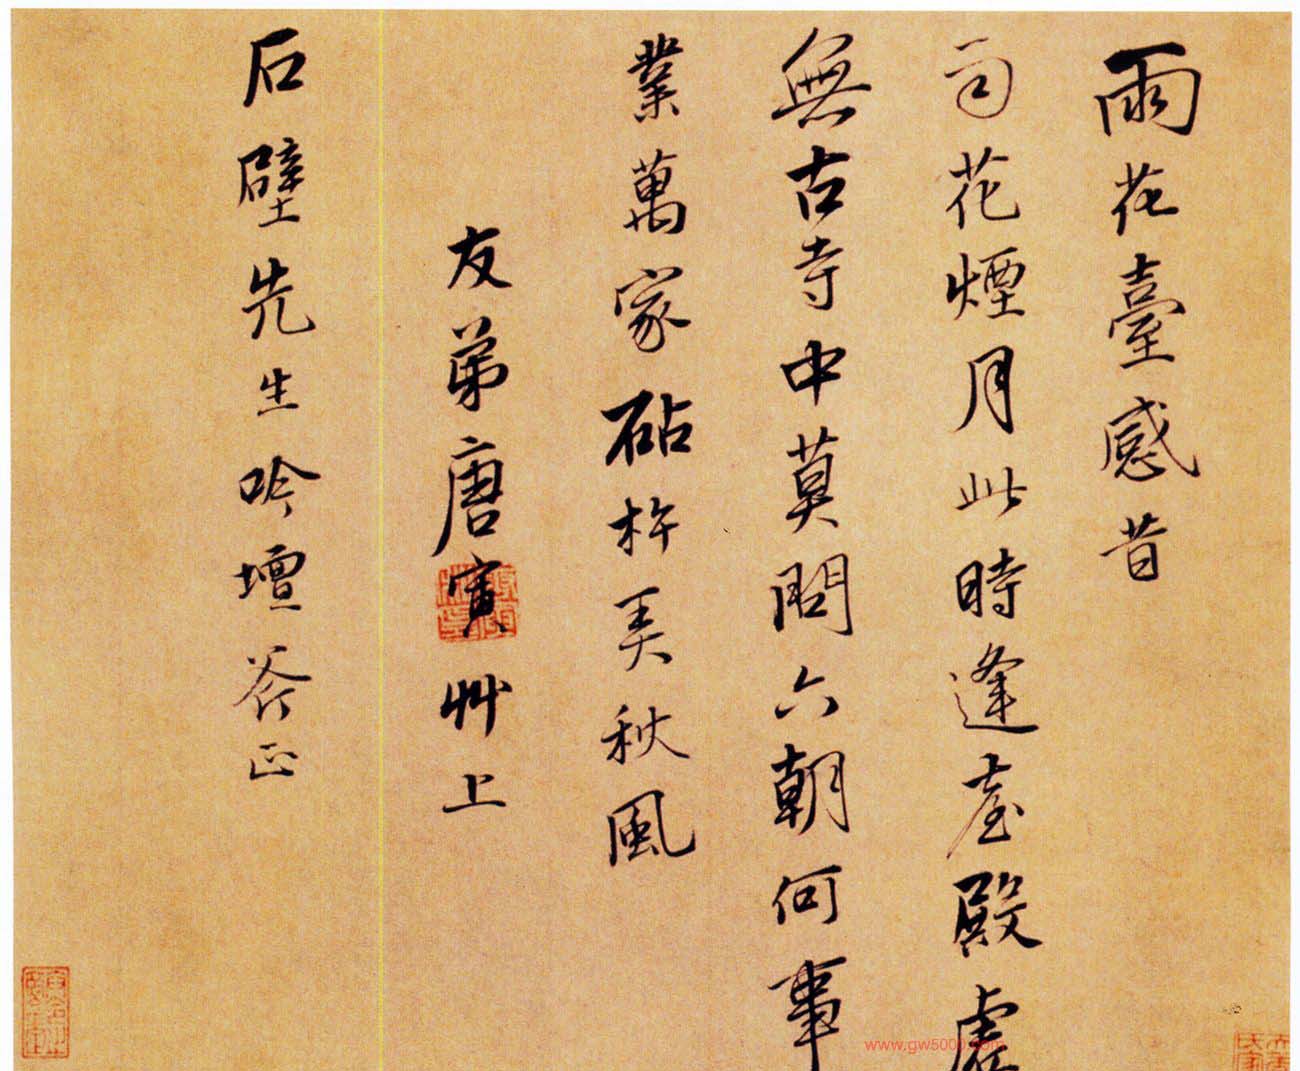 雨花臺感昔
司花煙月此時逢臺殿虛
無古寺中莫問六朝何事
業萬家砧杵美秋風
友弟唐寅艸上
石壁先生吟壇斧正
www.gw5000.com